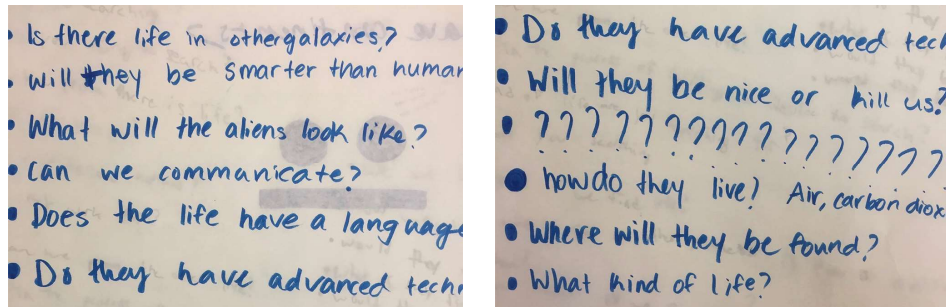 • Is there life in othergalaxies?
• Will they be smarter than human
• What will the aliens look like?
• Can we commanicate?
• Does the life have a language
• Do they have advanced techn
• Do they have advanced tech
• Will they be nice or kill us?
• ? ? ? ? ? ? ? ? ? ? ? ? ? ? ? ? ?
• howdo they live? Air, carbon diox
• Where will they be found?
• What kind of life?